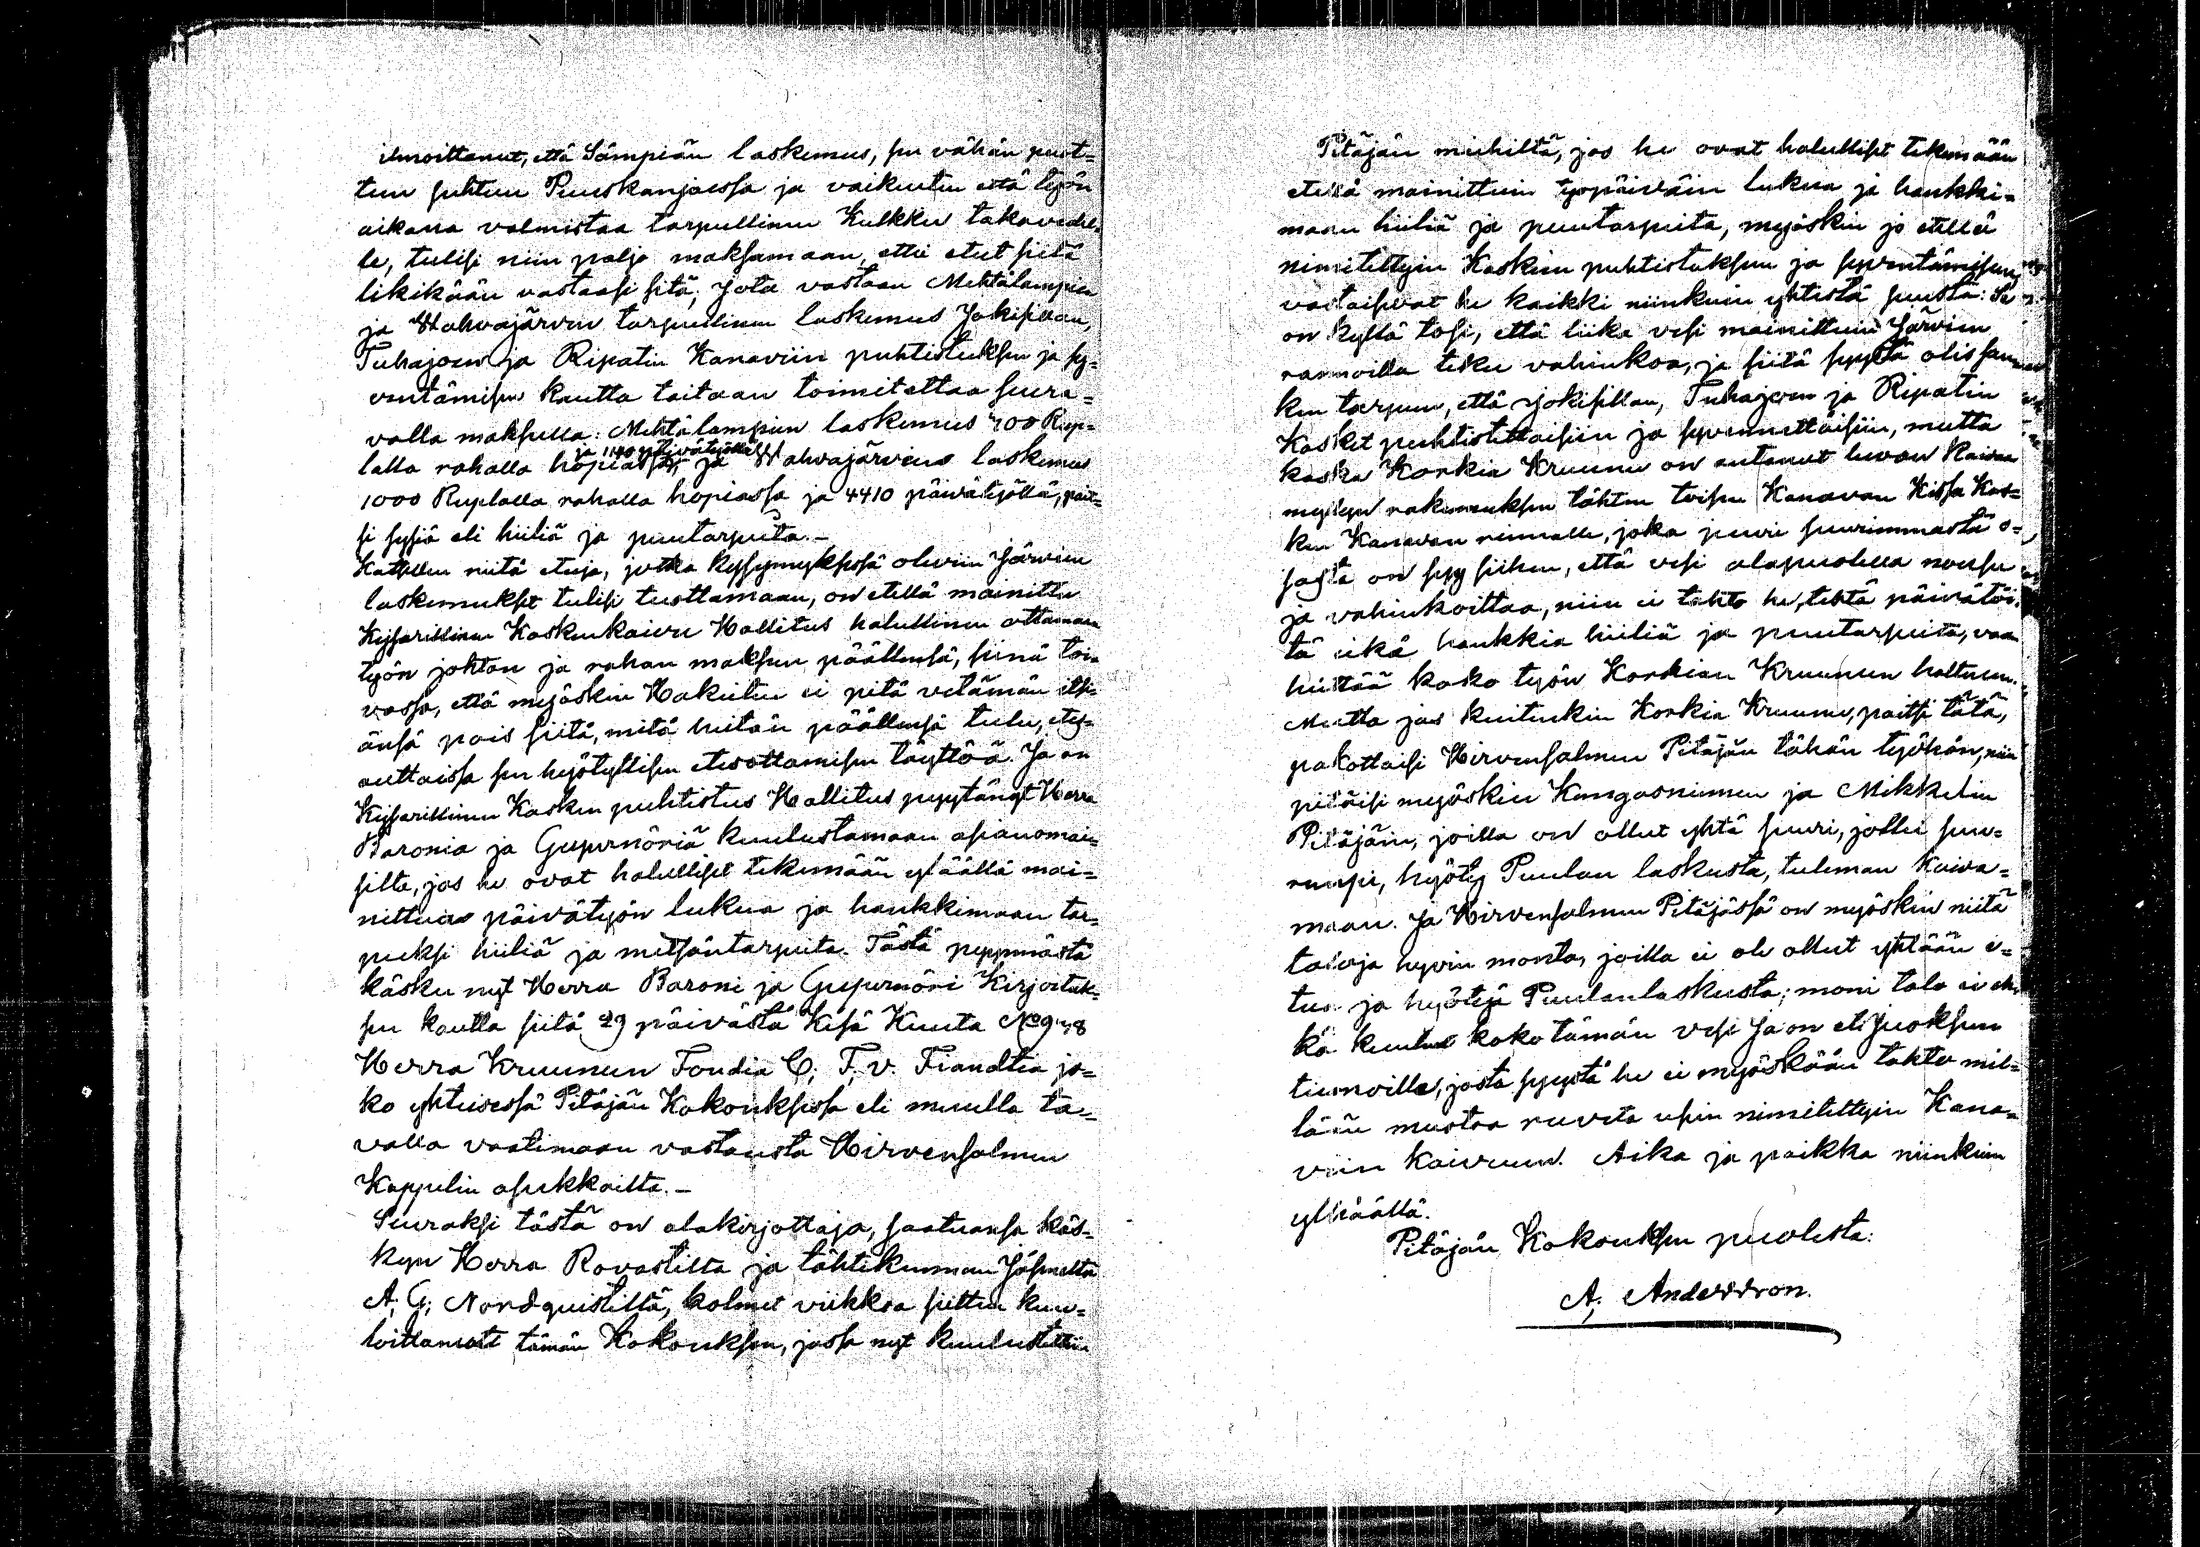 ilmoittanut, että Sämpiän laskemus, sen vähän puut-
teen suhteen Puuskanjoessa ja vaikutin että työn
aikana valmistaa tarpeellinen Kulkku takavedel-
le, tulisi niin paljo maksamaan, ettei etut siitä
likikään vastaisi sitä, jota vastaan Mehtälampien
ja Wahvajärven tarpeellinen laskemus Jokisillan,
Tuhajoen ja Ripatin Kanaviin puhtistuksen ja sy-
ventämisen kautta taitaan toimitettaa seura-
valla maksulla: Mehtälampien laskemus 700 Rup-
lalla rahalla hopiassa, ja 1140 päivätyöllä ja Wahvajärvens laskemus
1000 Ruplalla rahalla hopiassa ja 4410 päivätyöllä, pait-
si sysiä eli hiiliä ja puutarpeita.-
Katsellen niitä etuja, jotka kysymyksessä olevein Järvien
laskemukset tulisi tuottamaan, on etellä mainittu
Kejsarillinen Koskenkaivu Hallitus halullinen ottamaan
työn johton ja rahan maksun päällensä, siinä toi-
vossa, että myöskin Hakeutun ei pitä vetämän itsi-
änsä pois siitä, mitä heitän päällensä tulee, ety-
auttaissa sen hyötyllisen etesottamisen täyttöä. Ja on
Kejsarillinen Kosken puhtistus Hallitus pyytänyt Herra
Baronia ja Guvernöriä kuulustamaan asianomai-
silta, jos he ovat halulliset tekemään ylläällä mai-
nittuin päivätyön lukua ja hankkimaan tar-
peeksi hiiliä ja metsäntarpeita. Tästä syymmästä
käsku nyt Herra Baroni ja Guvernöri Kirjoituk-
sen kautta siitä 29 päivästä Kesä Kuuta No 948
Herra Kruunun Foudia C, F, v. Frandtia jo-
ko yhteisessä Pitäjän Kokouksessa eli muulla ta-
valla vaatimaan vastausta Hirvensalmen
Kappelin asukkailta.-
Seuraksi tästä on alakirjottaja, saatuansa käs-
kyn Herra Rovastilta ja tähtikunnan Jäsneltä
A, G, Nordquistiltä, kolmet viikkoa sitten kuu-
loittanut tämän Kokouksen, jossa nyt kuulusteltiin
Pitäjän miehiltä, jos he ovat halulliset tekemään
etellä mainittuin työpäiväin lukua ja hankki-
maan hiiliä ja puutarpeita, myöskin jo etellä
nimitettyin Koskien puhtistuksen ja syventämisen,
vastaisivat he kaikki niinkuin yhtistä suusta: Se
on kyllä tosi, että liika vesi mainittuin Järvien
rannoilla tekee vahinkoa, ja siitä syystä olis
ken tarpeen, että Jokisillan, Tuhajoen ja Ripatin
Kosket puhtistettaisiin ja syvennettäisiin, mutta
koska Korkia Kruunu on antanut luvan
myllyn rakennuksen tähten toisen Kanavan Kissa Kos-
ken Kanavan rinnalle, joka juuri suurimmasta o-
sasta on syy siihen, että vesi alapuolella nousee
ja vahinkoittaa, niin ei tahto he, tehtä päivätöi-
tä eikä hankkia hiiliä ja puutarpeita, vaan
heittää koko työn Korkian Kruunun haltuun.
Mutta jos kuitenkin Korkia Kruunu, paitsi tätä,
pakottaisi Hirvensalmen Pitäjän tähän työhön, niin
pitäisi myöskin Kangasniemen ja Mikkelin
Pitäjäin, joilla on ollut yhtä suuri, jollei suu-
rempi, hyöty Puulan laskusta, tuleman kaiva-
maan. Ja Hirvensalmen Pitäjässä on myöskin niitä
taloja hyvin monta, joilla ei ole ollut yhtään e-
tua ja hyötyä Puulanlaskusta; moni talo ei
kä kuulu koko tämän vesi Jaon eli Juoksun
tiennoille, josta syystä he ei myöskään tahto mil-
lään muotoa ruveta usein nimitettyin Kana-
vein kaivuun. Aika ja paikka niinkuin
ylhäällä.
Pitäjän Kokouksen puolesta:
A, Andersson.